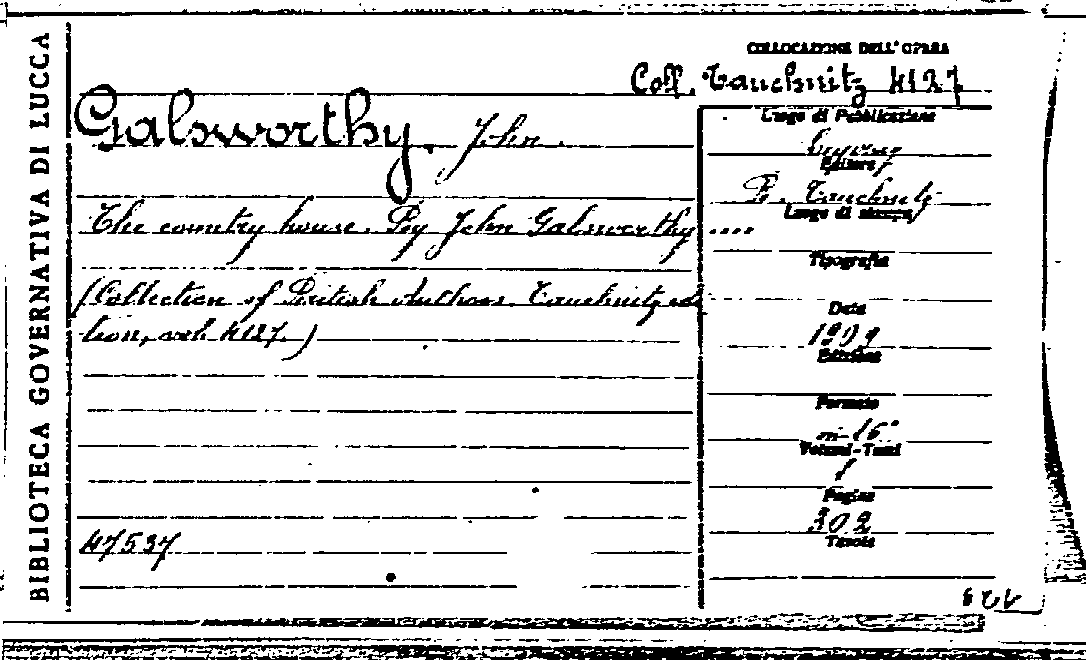 BIBLIOTECA GOVERNATIVA DI LUCCA
COLLOCAZIONE DELL' OPERA
Coll. Tauchnitz 4127
Galsworthy, John.
The country house. By John Galsworthy ....
(Collection of British Authors. Tauchnitz edi
tion, vol. 4127.)
47537
Luogo di Pubblicazione
Editore
B. Tauchnitz
Luogo di stampa
Tipografia
Data
1909
Edizione
Formato
in-16°
Volumi-Tomi
1
Pagine
302
Tavole